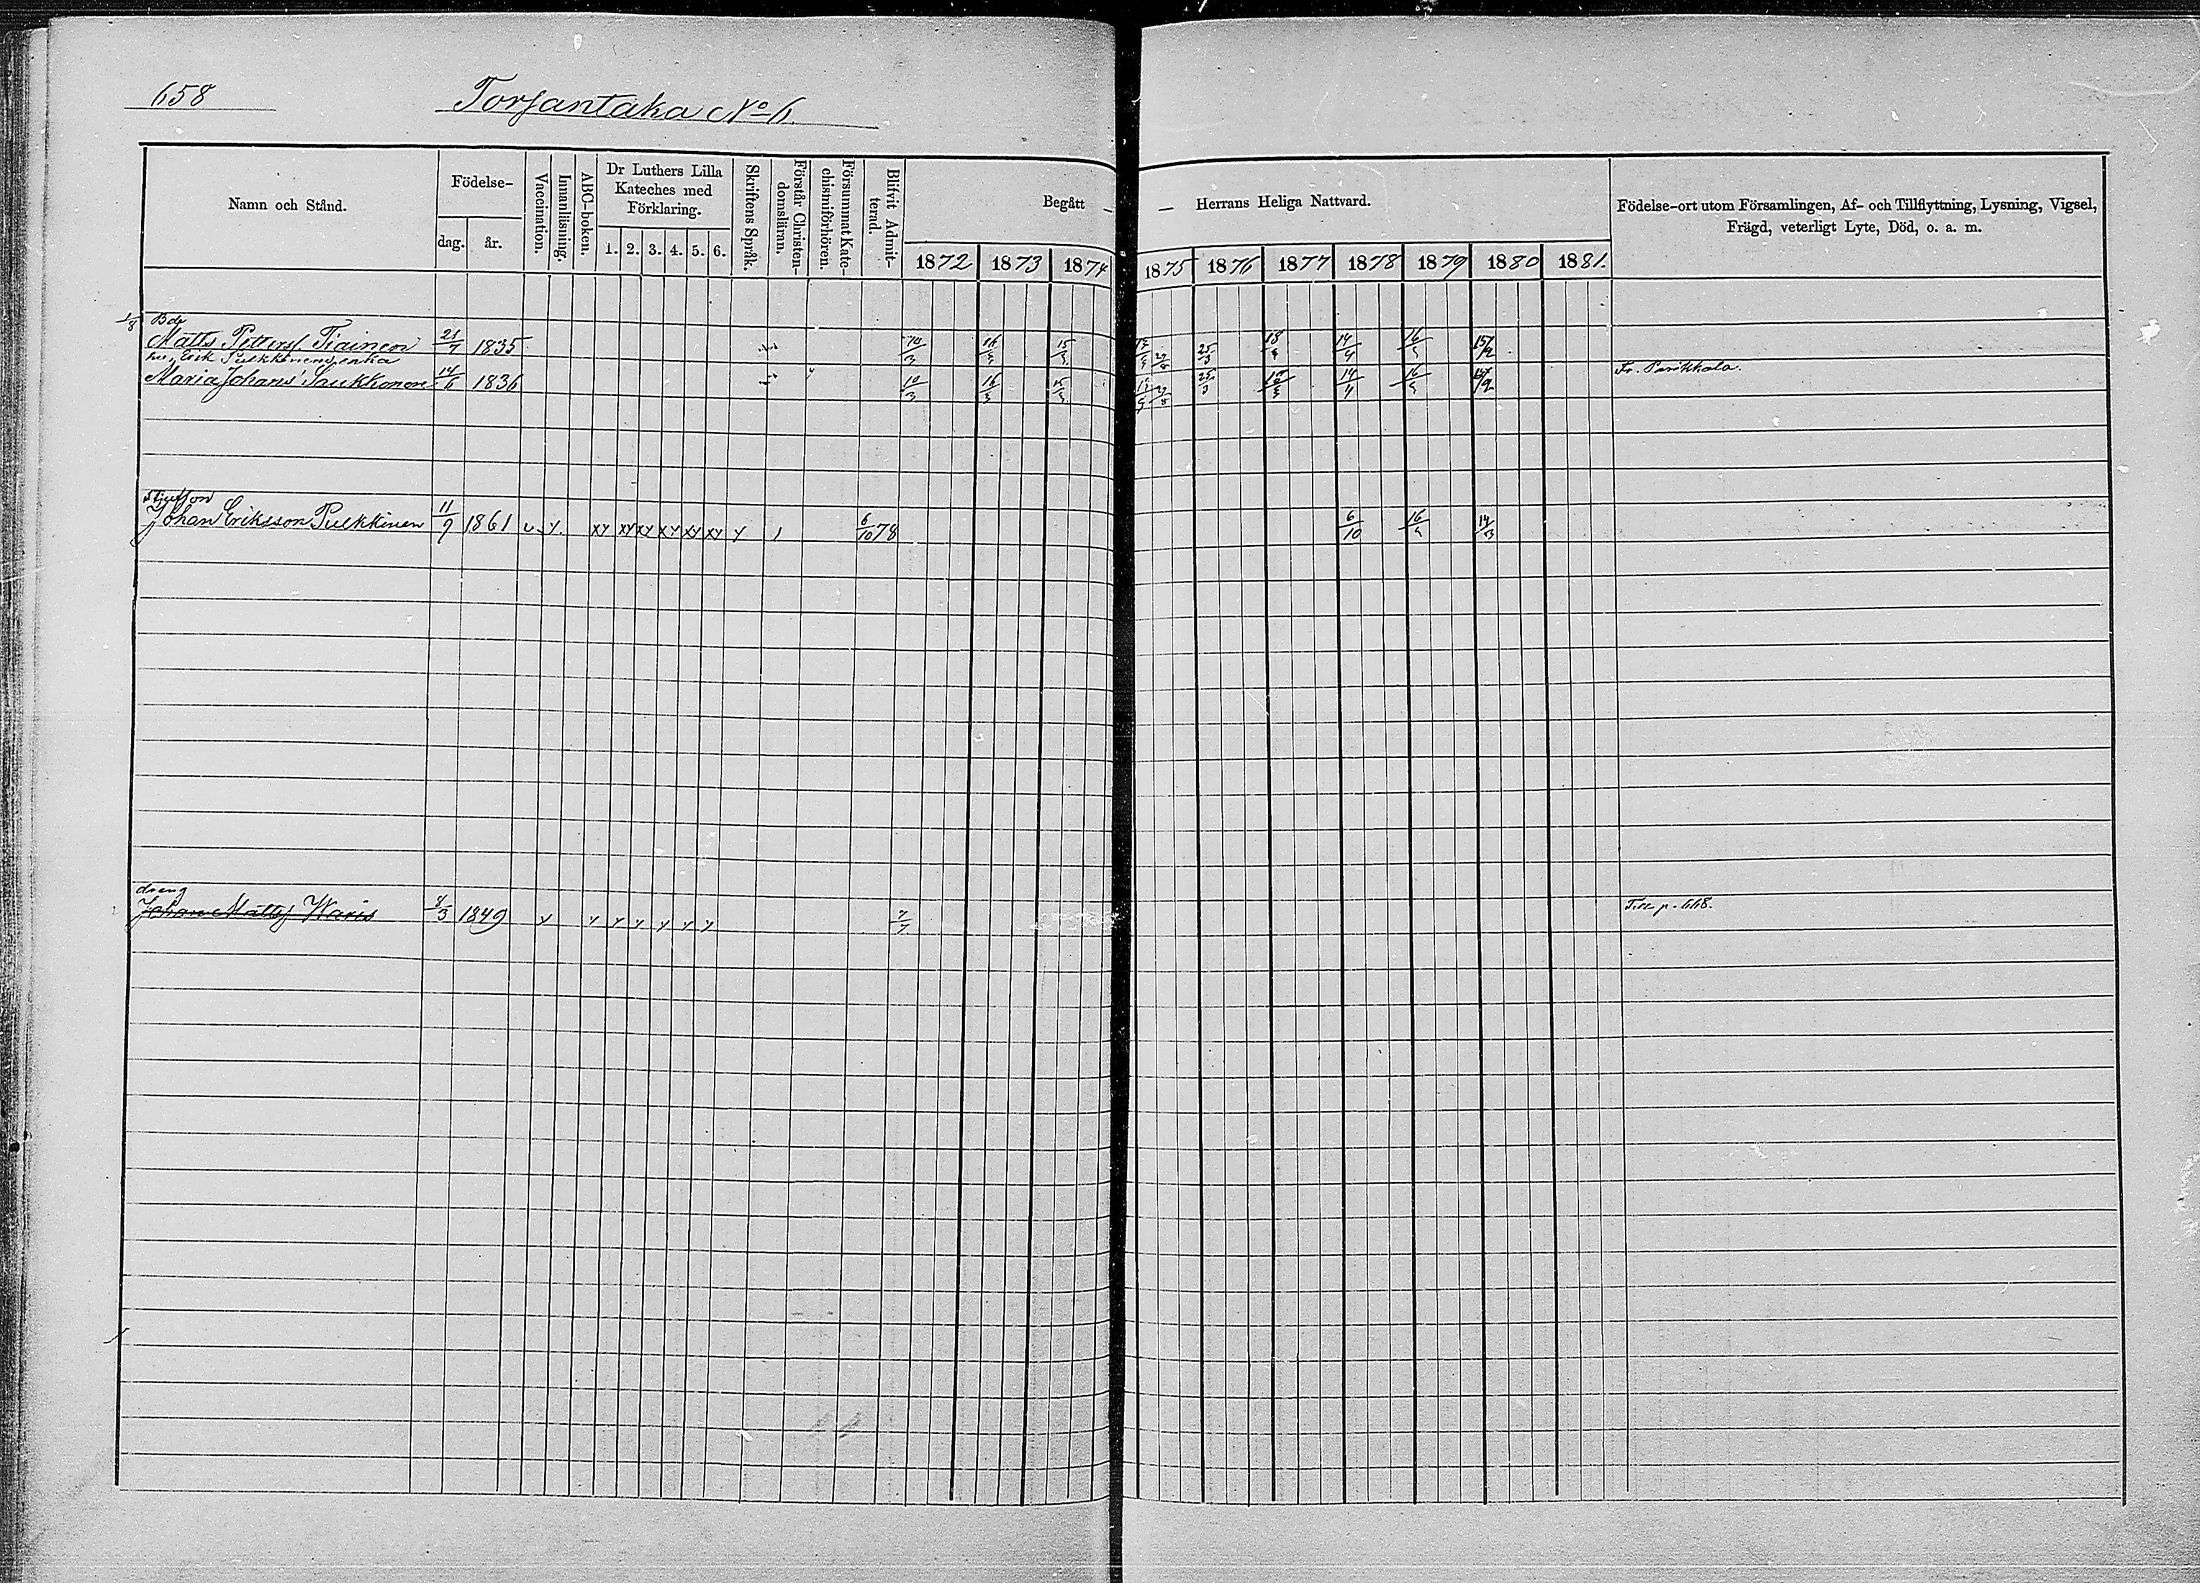 658
Torsantaka No 6.
Namn och Stånd.
Födelse-
dag.
år.
Vaccination.
Innanläsning.
ABC-boken.
Dr Luthers Lilla
Kateches med
Förklaring.
1. 2. 3. 4. 5. 6.
Skriftens Språk.
Förstår Christen-
domsläran.
Försummat Kate-
chismiförhören.
Blifvit Admit-
terad.
Begått — — Herrans Heliga Nattvard.
1872 1873 1874 1875 1876 1877 1878 1879 1880 1881.
Födelse-ort utom Församlingen, Af- och Tillflyttning, Lysning, Vigsel,
Frägd, veterligt Lyte, Död, o. a. m.
1/8 Bde
Matts Petterss Tiainen 21/7 1835 10/3 16/3 15/3 25/3 18/4 14/4 16/3 15/2
hu, Erik Pulkkinens enka
Maria Johans' Saukkonen 14/6 1836 10/3 16/3 15/3 25/3 14/4 16/3 15/2 Fr. Parikkala.
Stjufson
Johan Eriksson Pulkkinen 11/9 1861 v y xy xy xy xy xy xy y 6/10 78 6/10 16/3 14/3
dreng
Johan Mattss Waris 4/3 1849 y y y y y y y 7/7 Till p. 668.